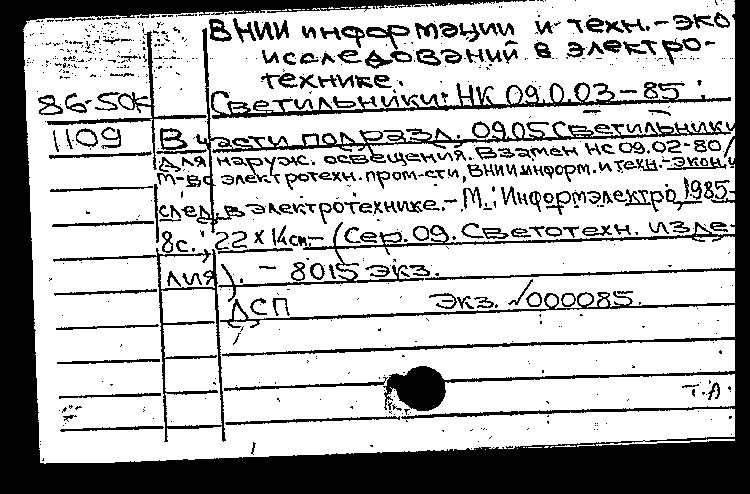 ВНИИ информации и техн.-эко
исследований в электро-
технике.
86-50к Светильники: НК 09.0.03-85:
1109 В части подразд. 09.05 Светильники
для наружн. освещения. Взамен НС 09.02-80/
М-во электротехн. пром-сти, ВНИИ информ. и техн.-экон. и
след. в электротехнике.-М.: Информэлектро, 1985-
8с.; 22×14см.- (Сер. 09. Светотехн. изде-
лия). - 8015 экз.
ДСП экз. √000085.
Т.А.